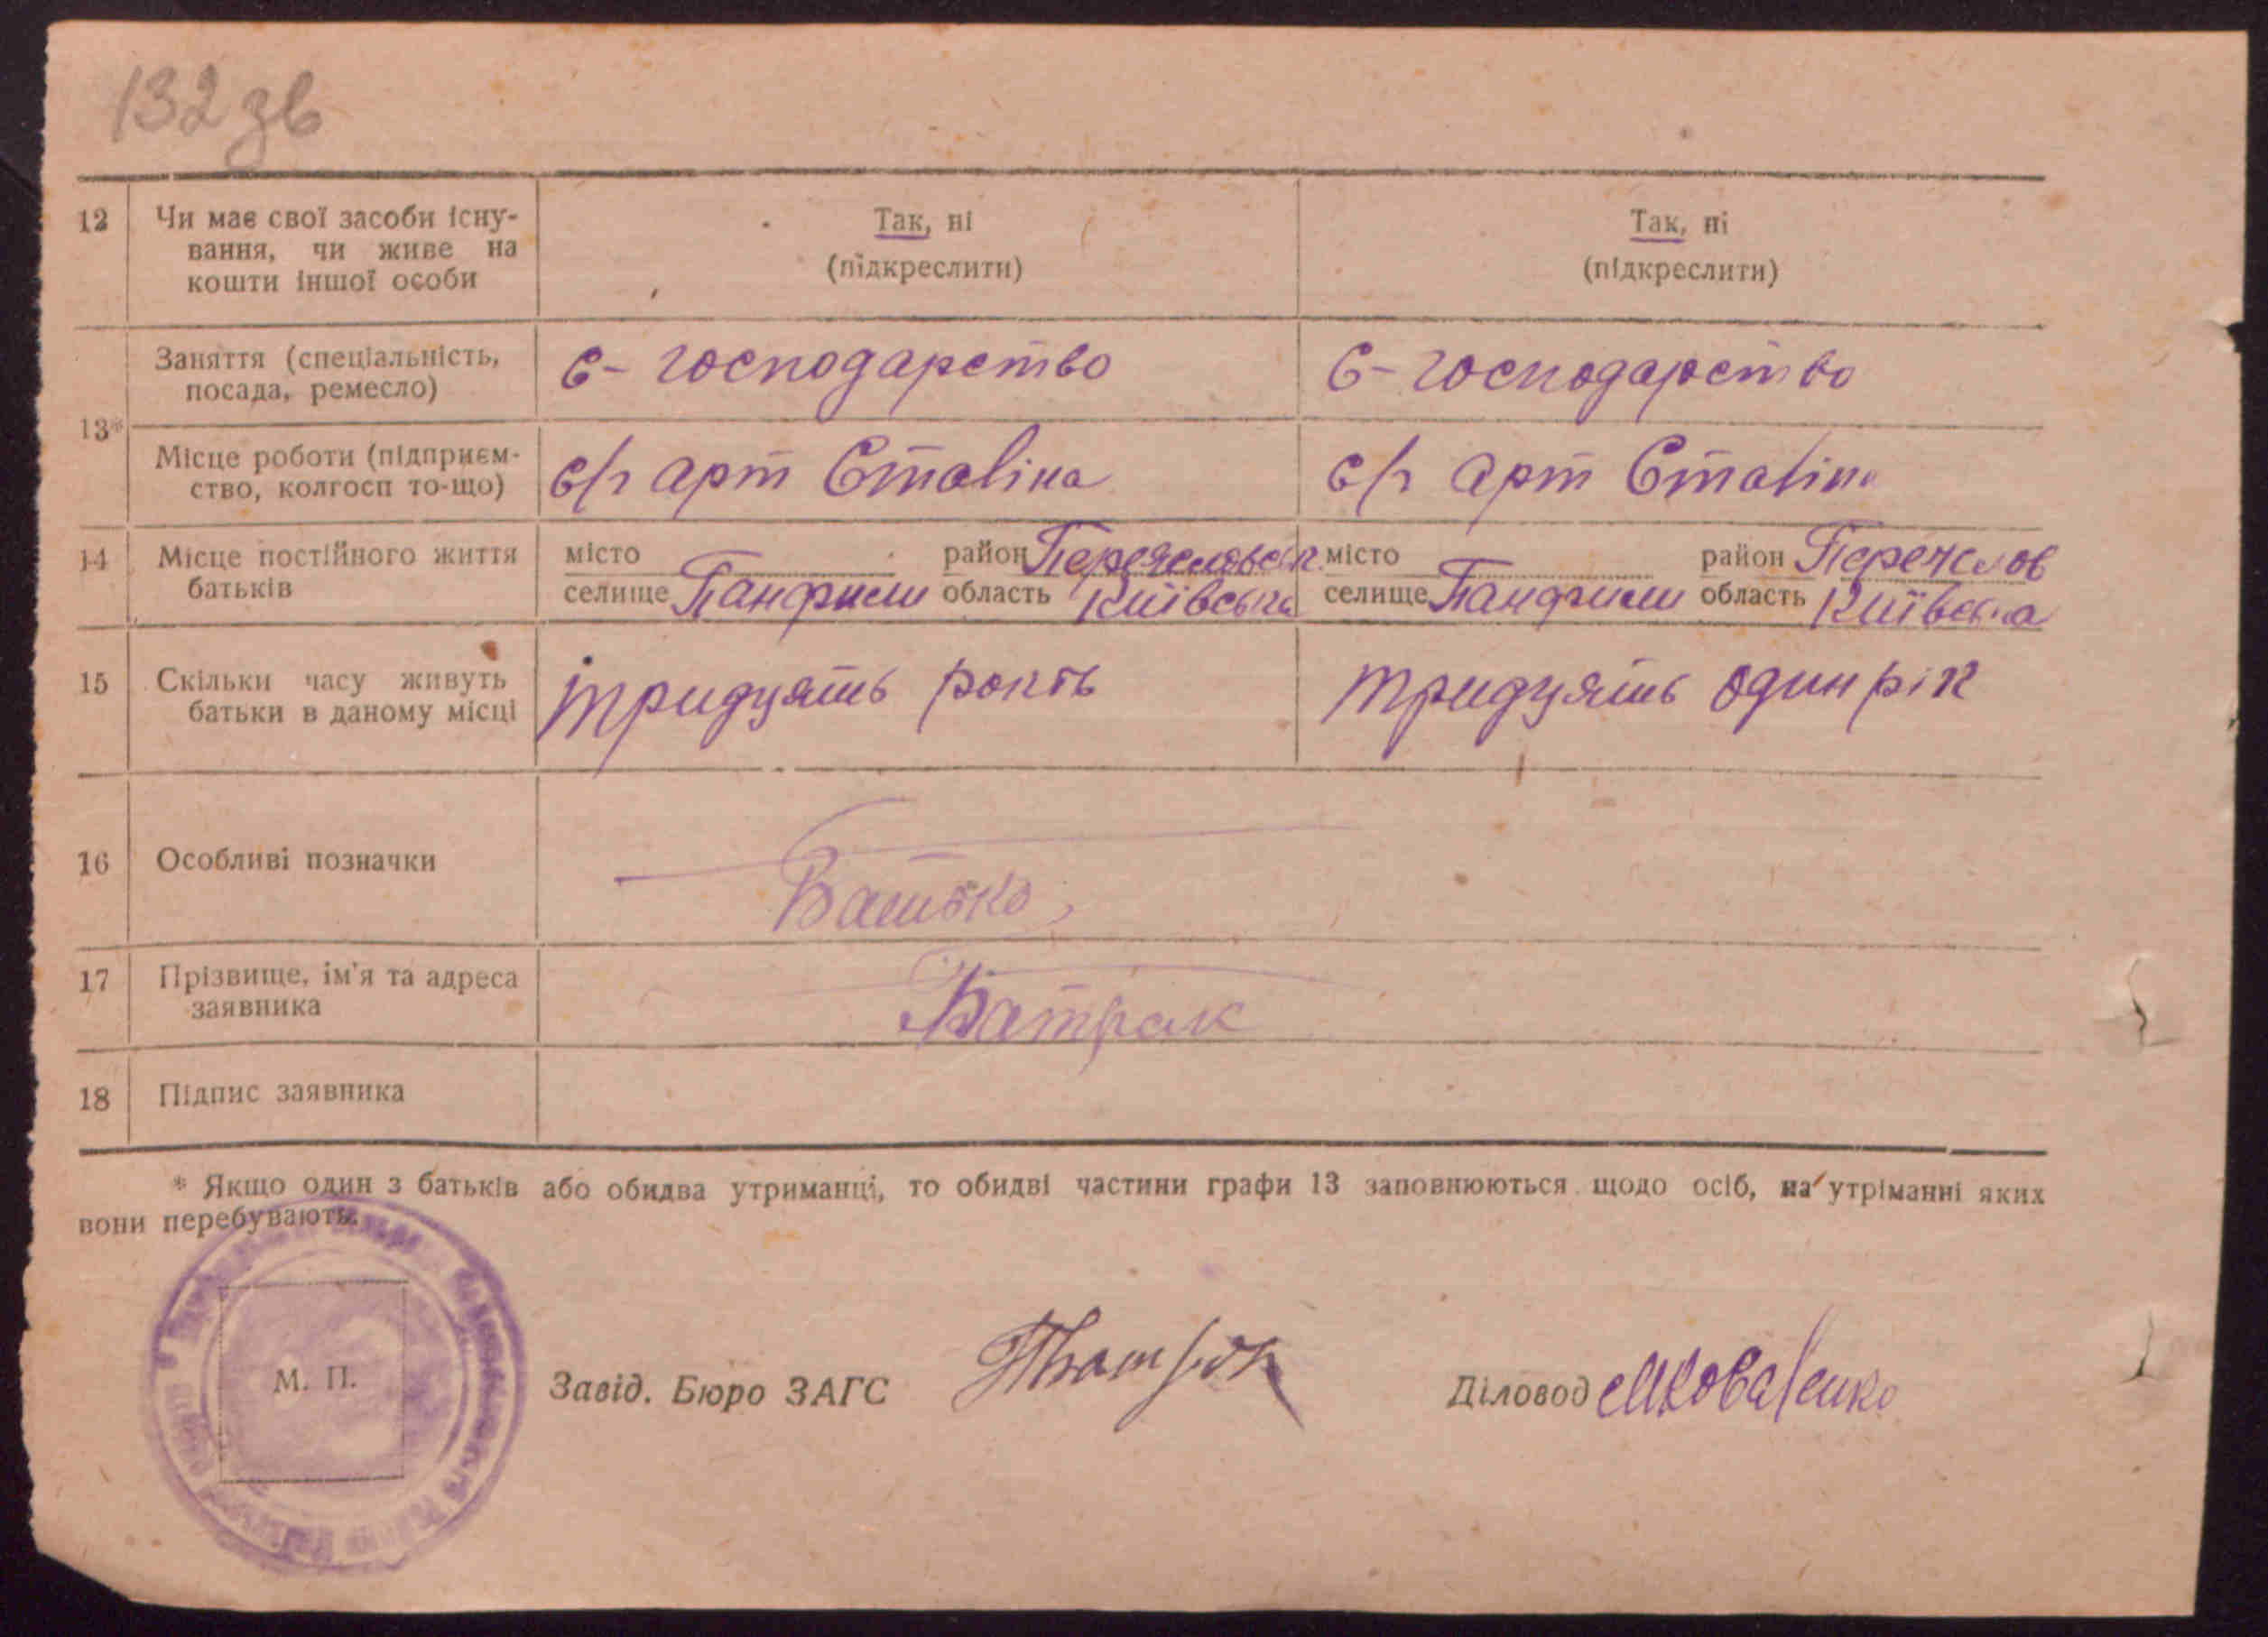 132 зв
12 Чи має свої засоби існу- Так, ні Так, ні
вання, чи живе на (підкреслити) (підкреслити)
кошти іншої особи
Заняття (спеціальність, с-господарство с-господарство
посада, ремесло)
13*
Місце роботи (підприєм- с/г арт Сталіна с/г арт Сталіна
ство, колгосп то-що)
14 Місце постійного життя місто район Переяславськ. місто район Переяслов
батьків селище Панфили область Київська селище Панфили область Київська
15 Скільки часу живуть тридцять років тридцять один рік
батьки в даному місці
16 Особливі позначки Батько
17 Прізвище, ім'я та адреса Батрак
заявника
18 Підпис заявника
* Якщо один з батьків або обидва утриманці, то обидві частини графи 13 заповнюються щодо осіб, на утріманні яких
вони перебувають.
М. П. Завід. Бюро ЗАГС Діловод МКоваленко